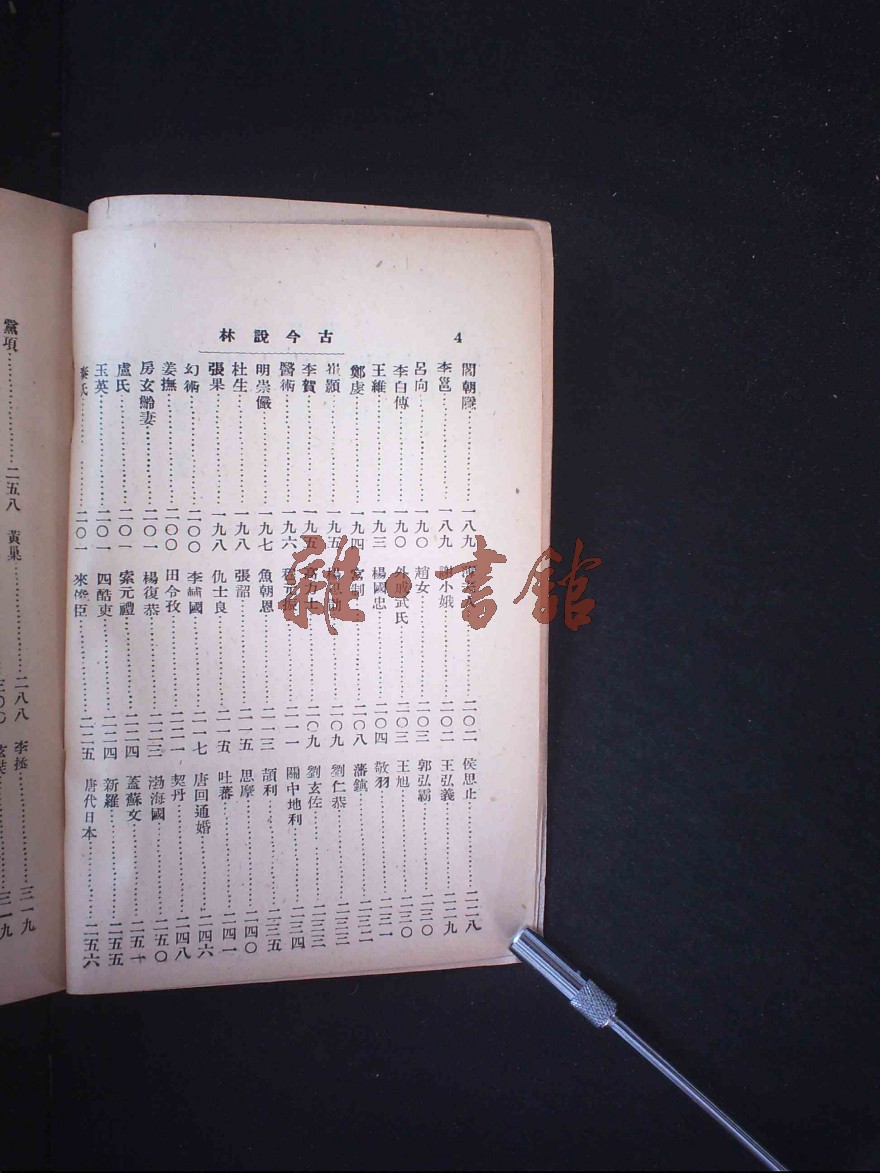 古今說林
4
閻朝隱……一八九
李邕……一八九
呂向……一九〇
李白傳……一九〇
王維……一九三
鄭虔……一九四
崔顥……一九五
李賀……一九五
醫術……一九六
明崇儼……一九七
杜生……一九八
張果……一九八
幻術……二〇〇
姜撫……二〇〇
房玄齡妻……二〇一
盧氏……二〇一
玉英……二〇一
氏……二〇一
二〇二
謝小娥……二〇二
趙女……二〇三
外戚武氏……二〇三
楊國忠……二〇四
宦制……二〇八
楊思勗……二〇九
高力士……二〇九
程元振……二一一
魚朝恩……二一三
張韶……二一五
仇士良……二一五
李輔國……二一七
田令孜……二二一
楊復恭……二二三
索元禮……二二四
四酷吏……二二四
來俊臣……二二五
侯思止……二二八
王弘義……二二九
郭弘霸……二三〇
王旭……二三〇
敬羽……二三一
藩鎮……二三二
劉仁恭……二三三
劉玄佐……二三三
關中地利……二三四
頡利……二三五
思摩……二四〇
吐蕃……二四一
唐回通婚……二四六
契丹……二四八
渤海國……二五〇
蓋蘇文……二五一
新羅……二五五
唐代日本……二五六
黨項……二五八
黃巢……二八八
李拯……三一九
三一九
雜·書館